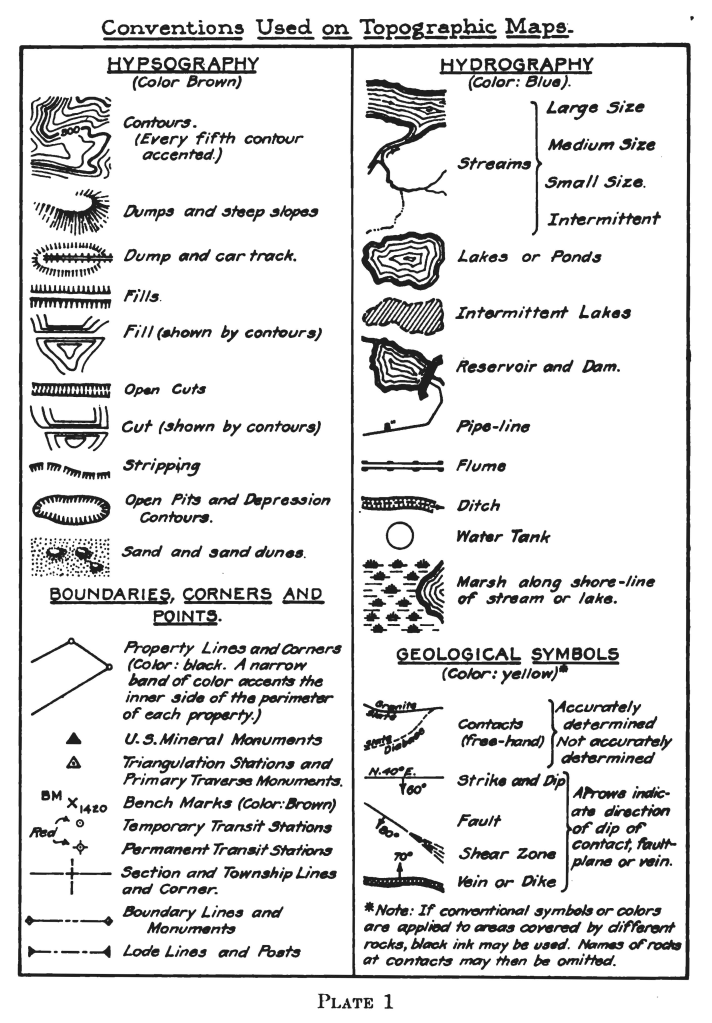 Conventions Used on Topographic Maps.
HYPSOGRAPHY
(Color Brown)
800
Contours.
(Every fifth contour
accented.)
Dumps and steep slopes
Dump and car track.
Fills.
Fill (shown by contours)
Open Cuts
Cut (shown by contours)
Stripping
Open Pits and Depression
Contours.
Sand and sand dunes.
BOUNDARIES, CORNERS AND
POINTS.
Property Lines and Corners
(Color: black. A narrow
band of color accents the
inner side of the perimeter
of each property.)
U.S. Mineral Monuments
Triangulation Stations and
Primary Traverse Monuments.
BM X 1420
Bench Marks (Color: Brown)
Red
Temporary Transit Stations
Permanent Transit Stations
Section and Township Lines
and Corner.
Boundary Lines and
Monuments
Lode Lines and Posts
HYDROGRAPHY
(Color: Blue).
Streams
Large Size
Medium Size
Small Size.
Intermittent
Lakes or Ponds
Intermittent Lakes
Reservoir and Dam.
8"
Pipe-line
Flume
Ditch
Water Tank
Marsh along shore-line
of stream or lake.
GEOLOGICAL SYMBOLS
(Color: yellow)*
Granite
Slate
Slate
Diabase
Contacts
(free-hand)
Accurately
determined
Not accurately
determined
N.40°E.
60°
Strike and Dip
80°
Fault
Shear Zone
70°
Vein or Dike
Arrows indic-
ate direction
of dip of
contact, fault-
plane or vein.
*Note: If conventional symbols or colors
are applied to areas covered by different
rocks, black ink may be used. Names of rocks
at contacts may then be omitted.
PLATE 1